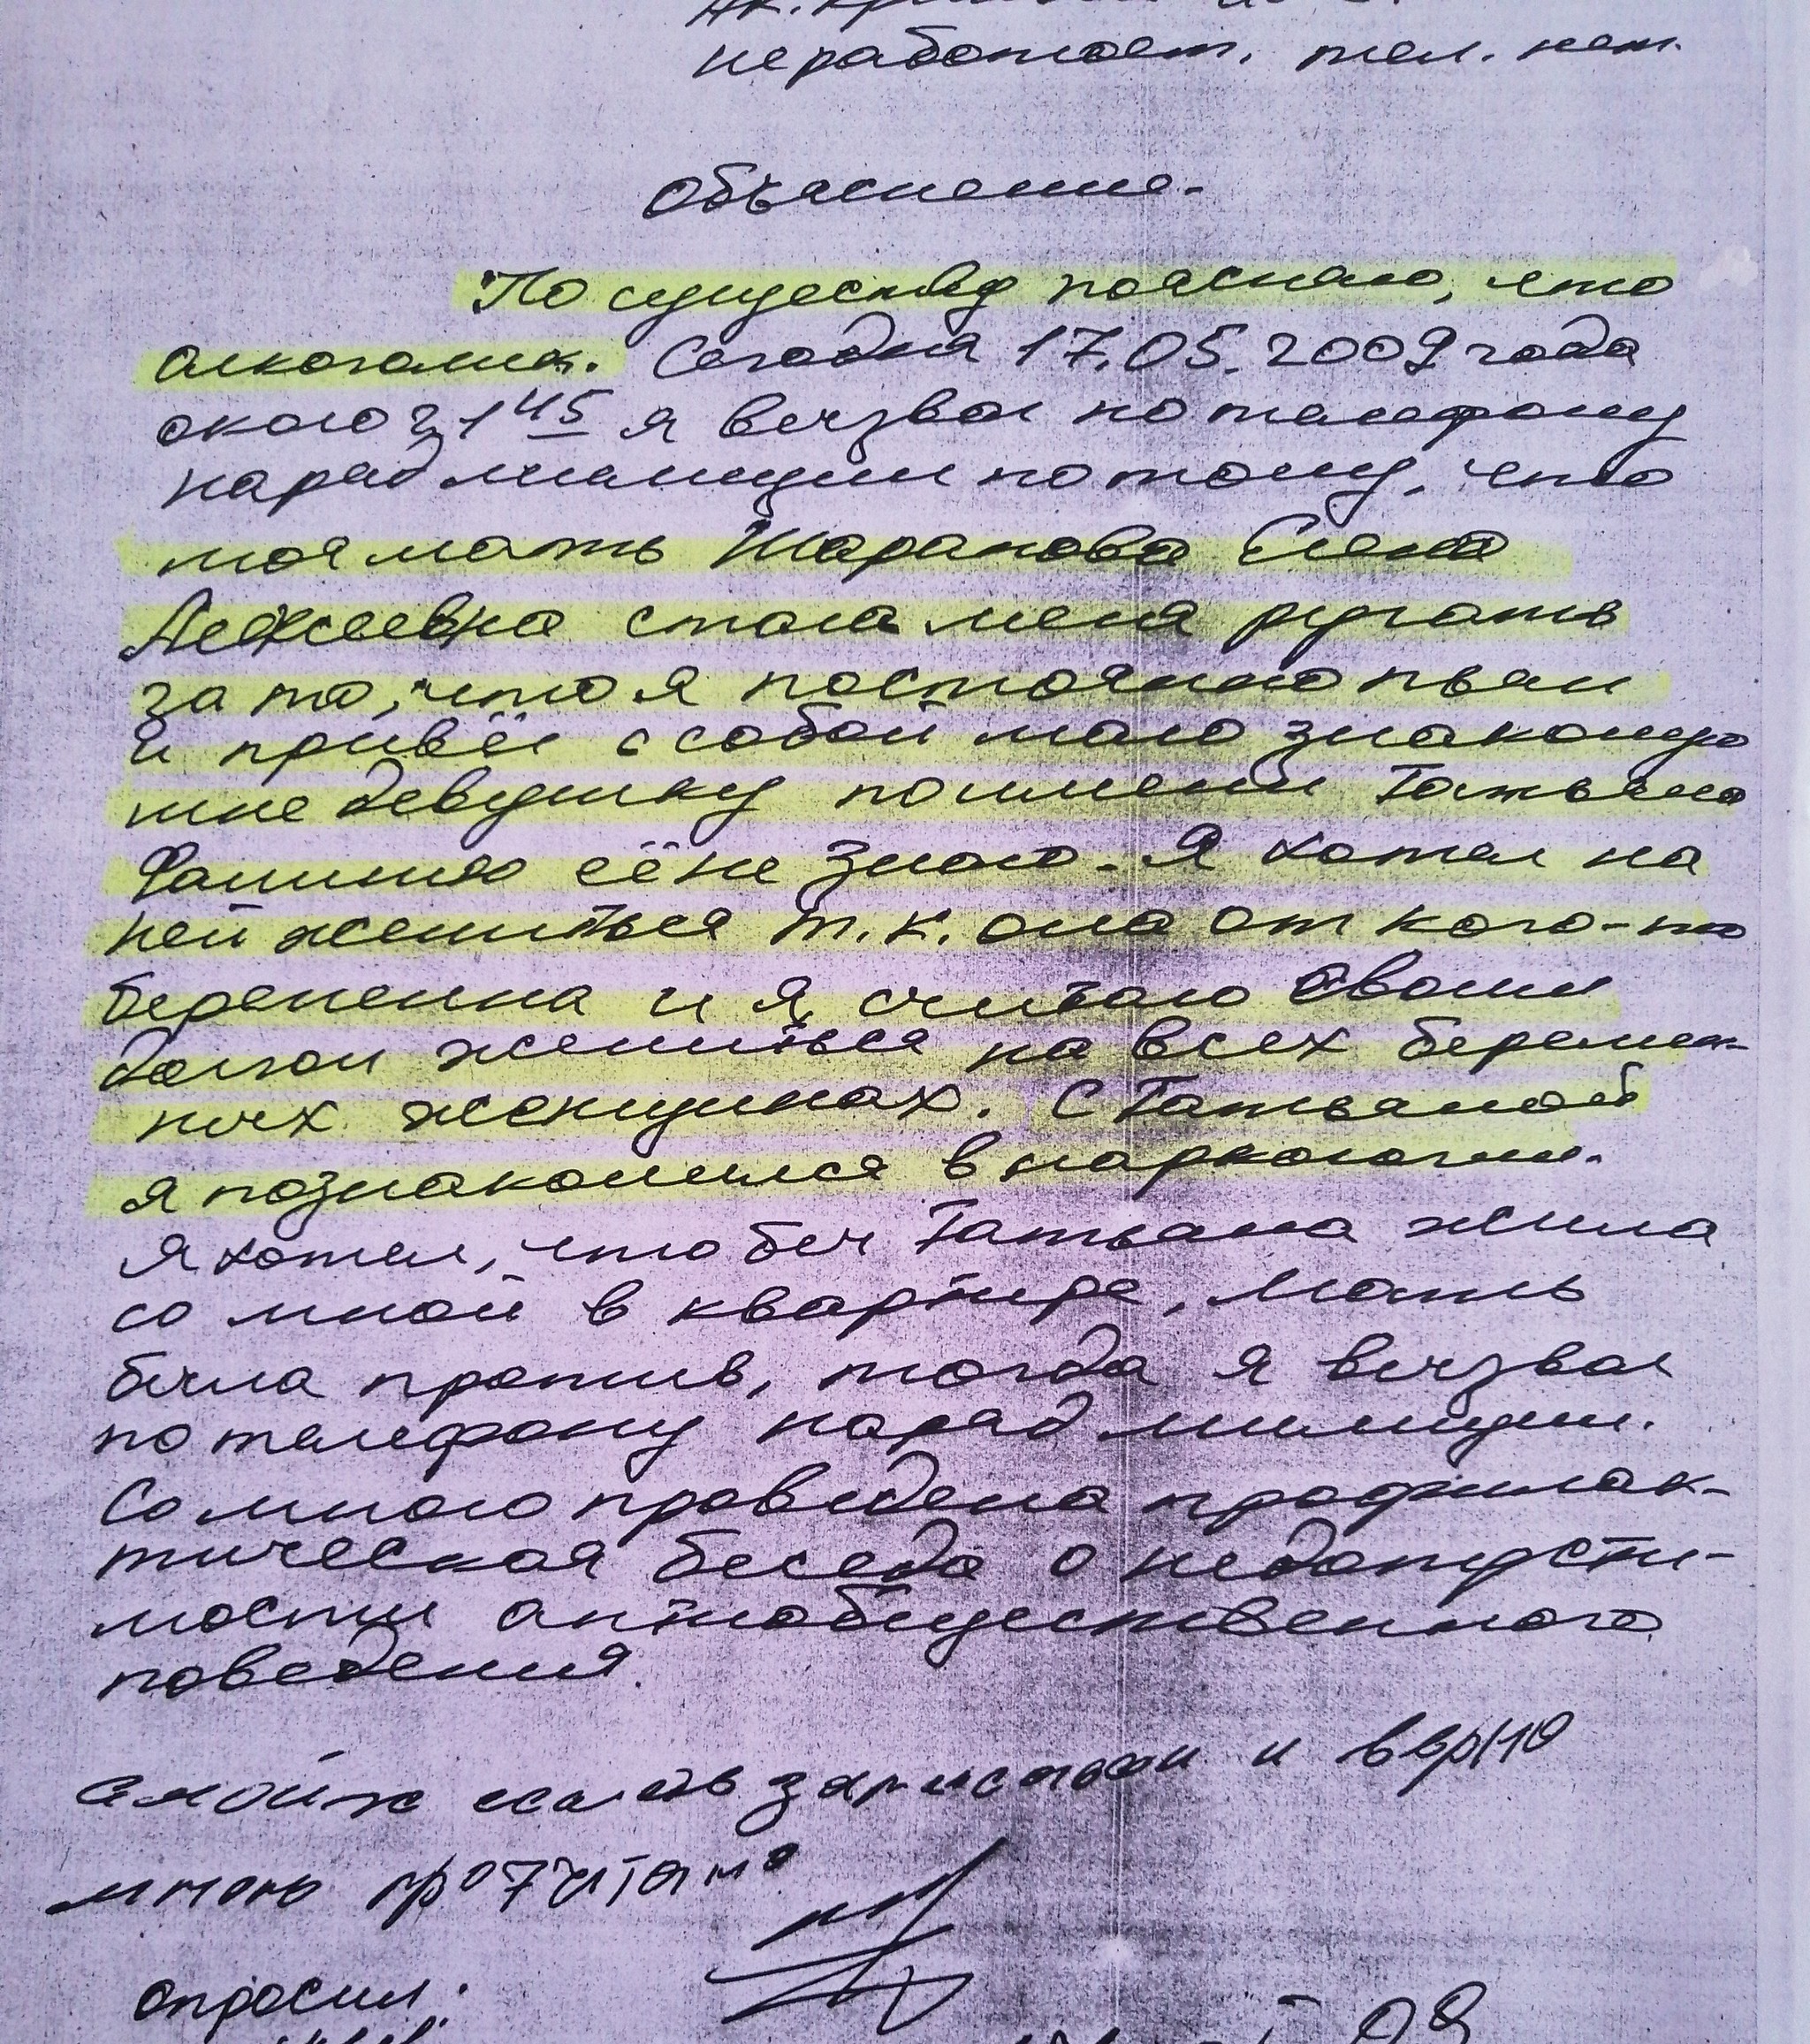 не работает. тел. нет.
Объяснение.
По существу поясняю, что
алкоголик. Сегодня 17.05.2009 года
около 21 45 я вызвал по телефону
наряд милиции потому, что
моя мать Шарапова Елена
Алексеевна стала меня ругать
за то, что я постоянно пьян
и привёл с собой мало знакомую
мне девушку по имени Татьяна
Фамилию её не знаю. Я хотел на
ней жениться т.к. она от кого-то
беременна и я считаю своим
долгом жениться на всех беремен-
ных женщинах. С Татьяной
я познакомился в наркологии.
Я хотел, что бы Татьяна жила
со мной в квартире, мать
была против, тогда я вызвал
по телефону наряд милиции.
Со мною проведена профилак-
тическая беседа о недопусти-
мости антиобщественного
поведения.
записано и верно
мною прочитано
опросил: